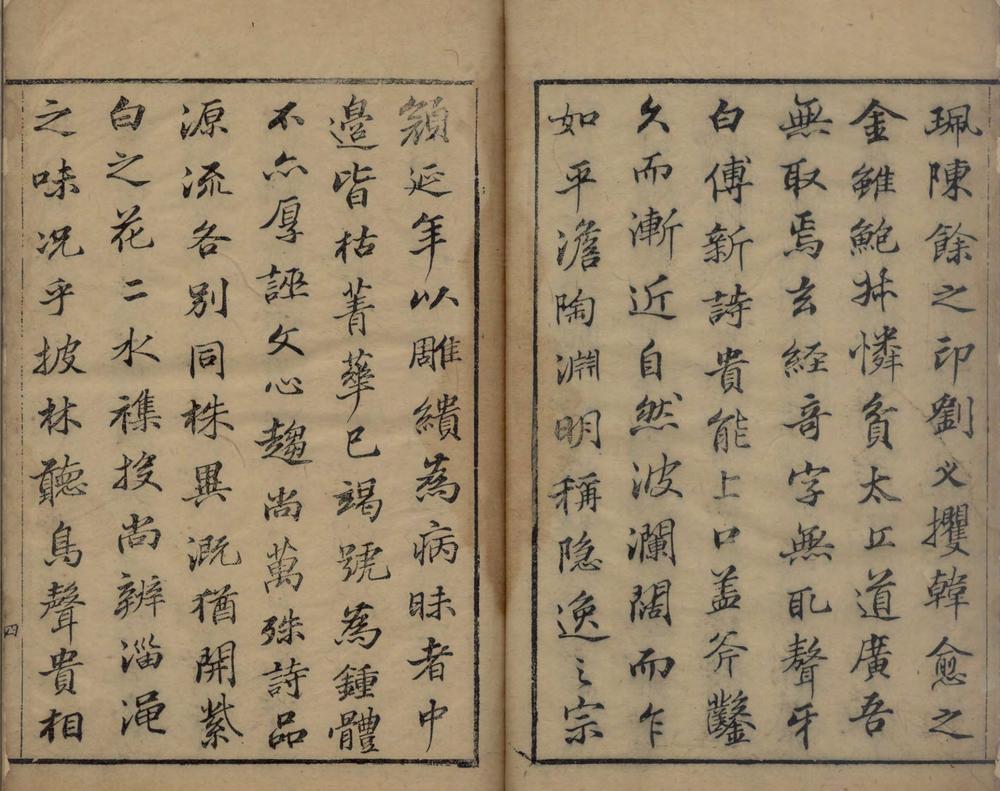 珮陳餘之印劉乂攫韓愈之
金雖鮑叔憐貧太丘道廣吾
無取焉玄經奇字無取聱牙
白傅新詩貴能上口盖斧鑿
久而漸近自然波瀾闊而乍
如平澹陶淵明稱隐逸之宗
顔延年以雕繢為病昧者中
邉皆枯菁華已竭號為鍾體
不亦厚誣文心趨尚萬殊詩品
源流各别同株異溉猶開紫
白之花二水襍投尚辨淄澠
之味况乎披林聽鳥聲貴相
四